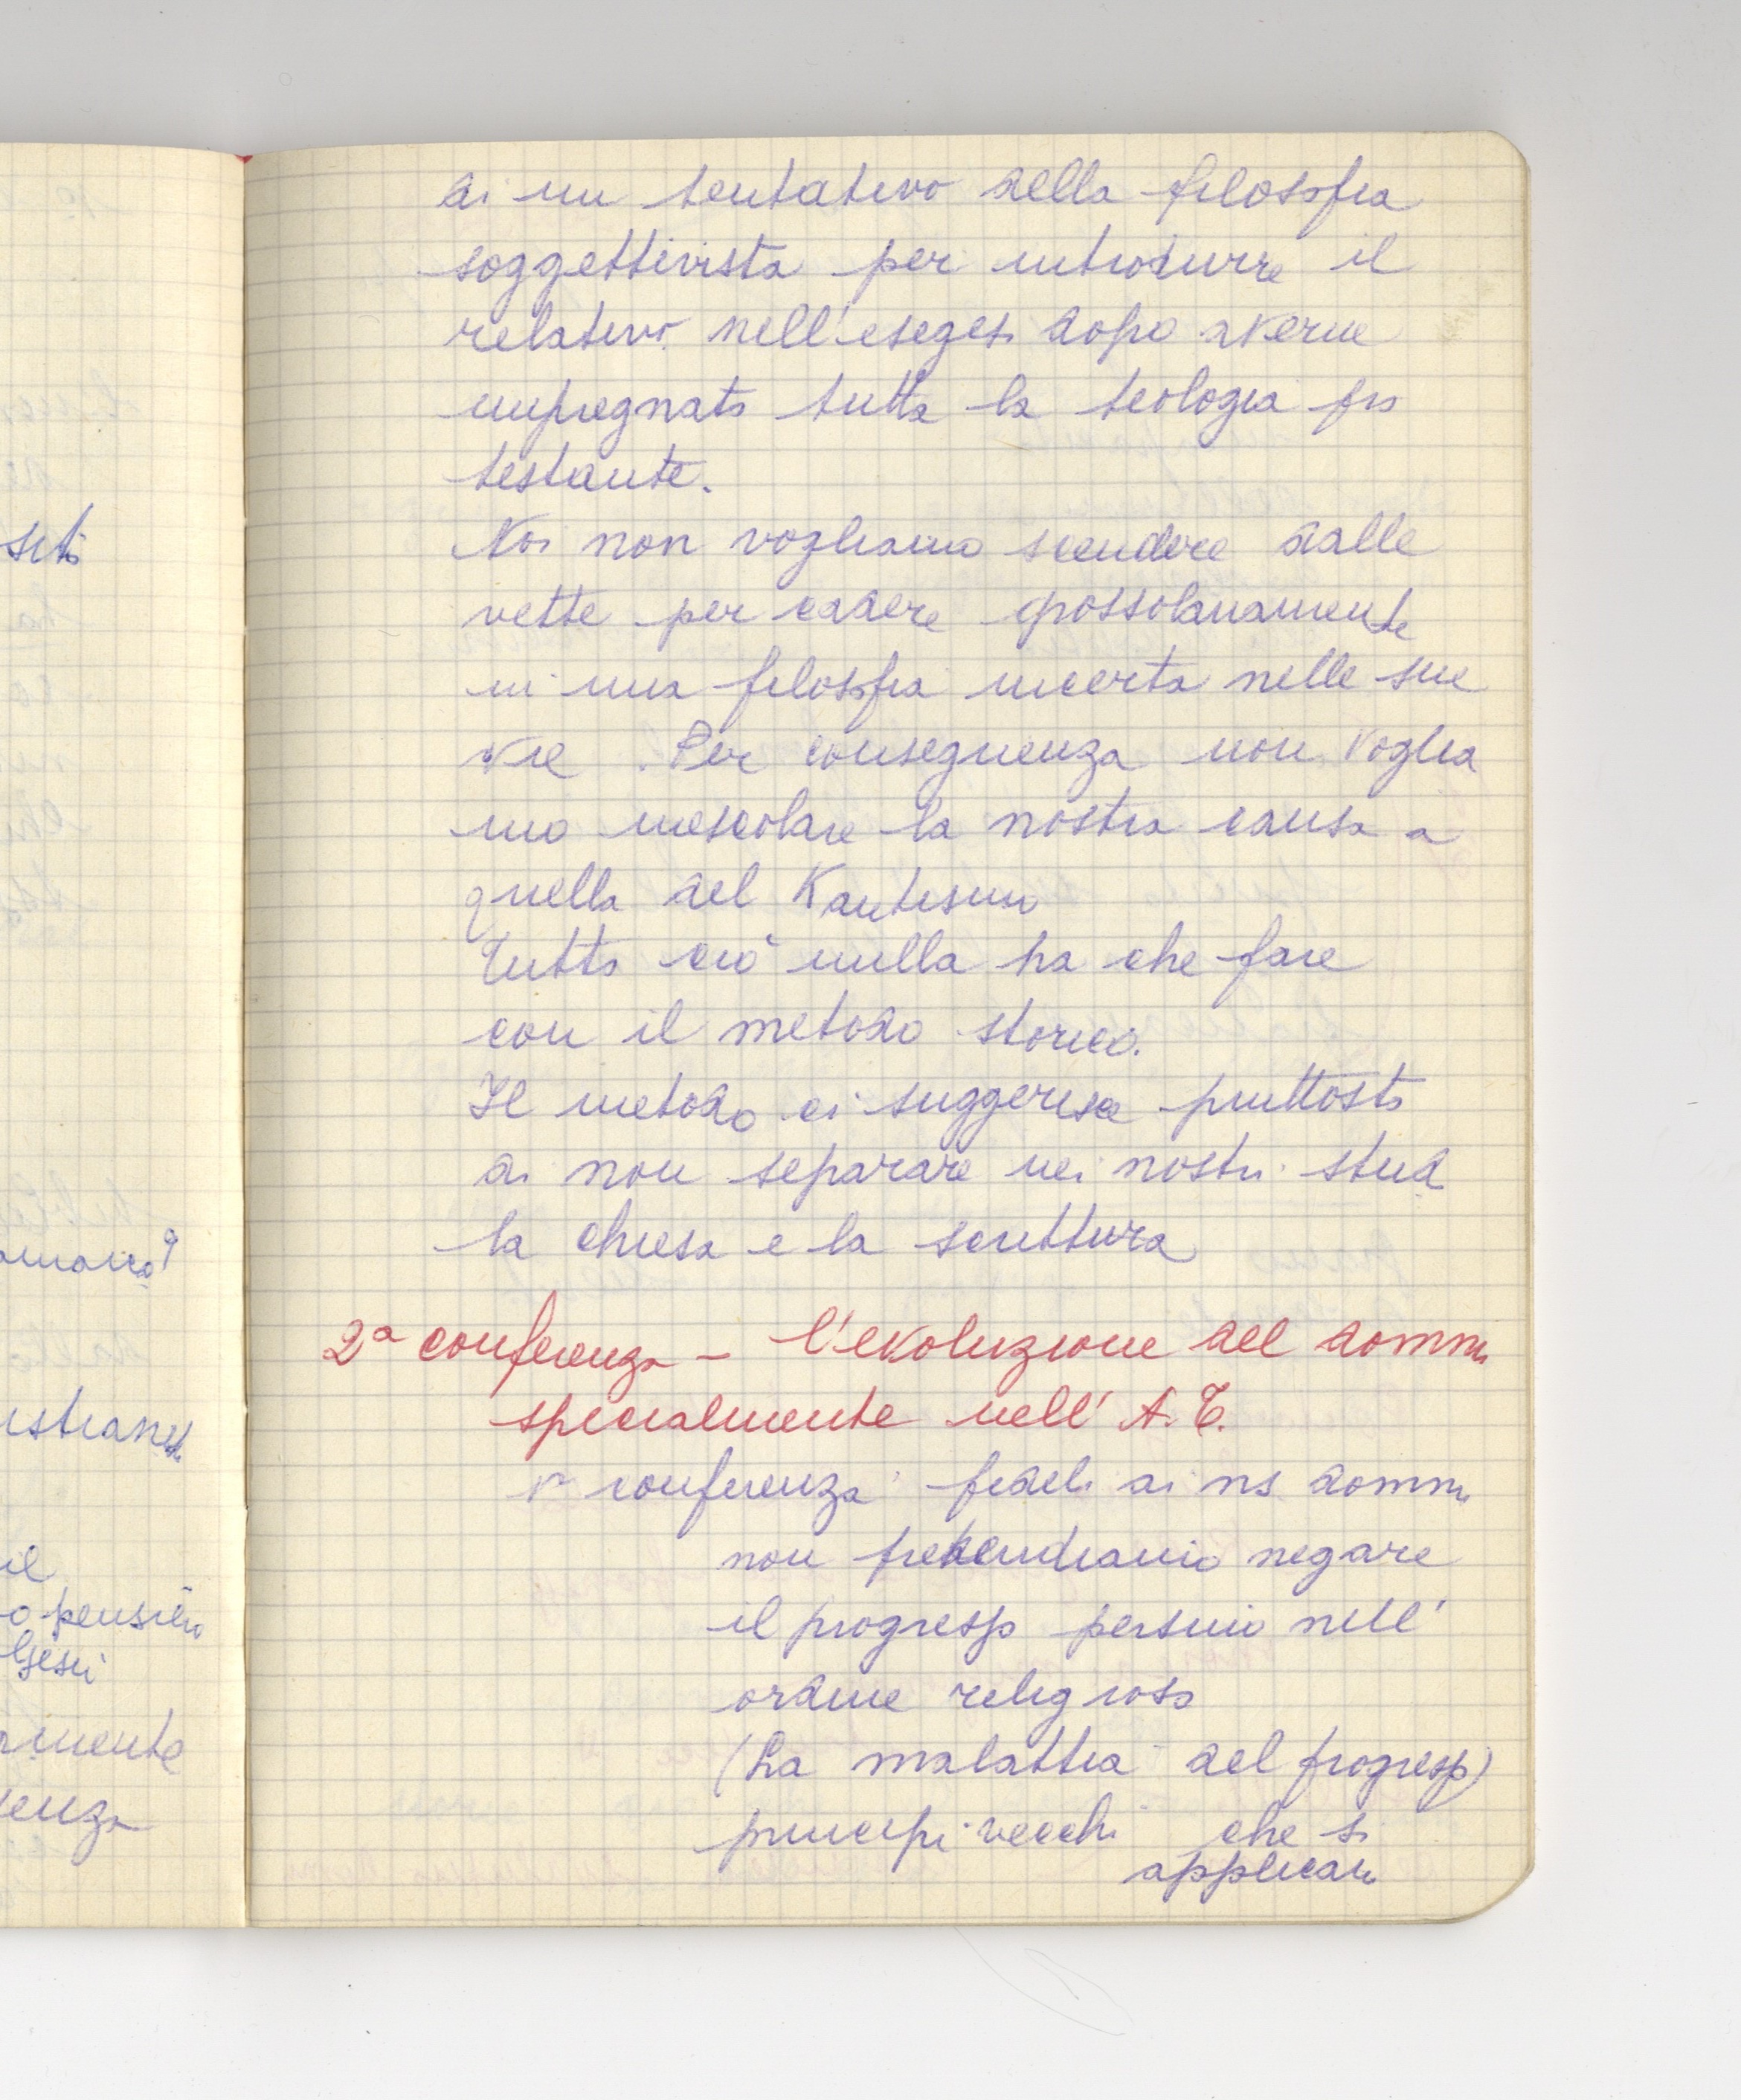 di un tentativo della filosofia
soggettivista per introdurre il
relativo nell'esegesi dopo averne
impregnato tutta la teologia pro
testante.
Noi non vogliamo scendere dalle
vette per cadere grossolanamente
in una filosofia incerta nelle sue
vie. Per conseguenza non voglia
mo mescolare la nostra causa a
quella del Kantismo
Tutto ciò nulla ha che fare
con il metodo storico.
Il metodo ci suggerisce piuttosto
di non separare nei nostri studi
la chiesa e la scrittura
2a conferenza - l'evoluzione del domma
specialmente nell'A.T.
conferenza fedeli ai ns dommi
non pretendiamo negare
il progresso persino nell'
ordine religioso
(La malattia del progresso)
principi vecchi che si
applicano
pensiero
Gesù